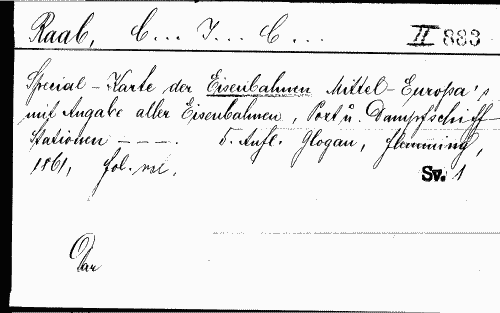 Raab, C... J... C...
II 883
Special-Karte der Eisenbahnen Mittel-Europa's
mit Angabe aller Eisenbahnen, Port u. Dampfschiff-
stationen - - - -. 5. Aufl. Glogau, Flemming,
1861, fol.
Sv. 1